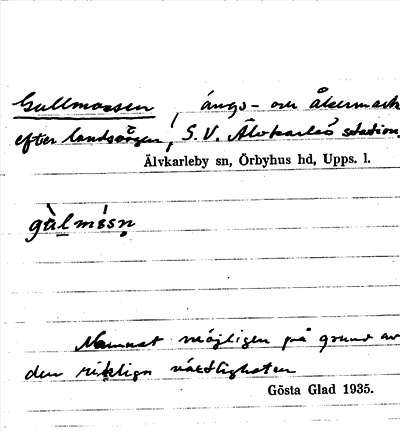 Gullmossen, ängs- och åkermark
efter landsvägen, S.V. Älvkarleö station.
Älvkarleby sn, Örbyhus hd, Upps. l.
Namnet möjligen på grund av
den rikliga växtligheten
Gösta Glad 1935.